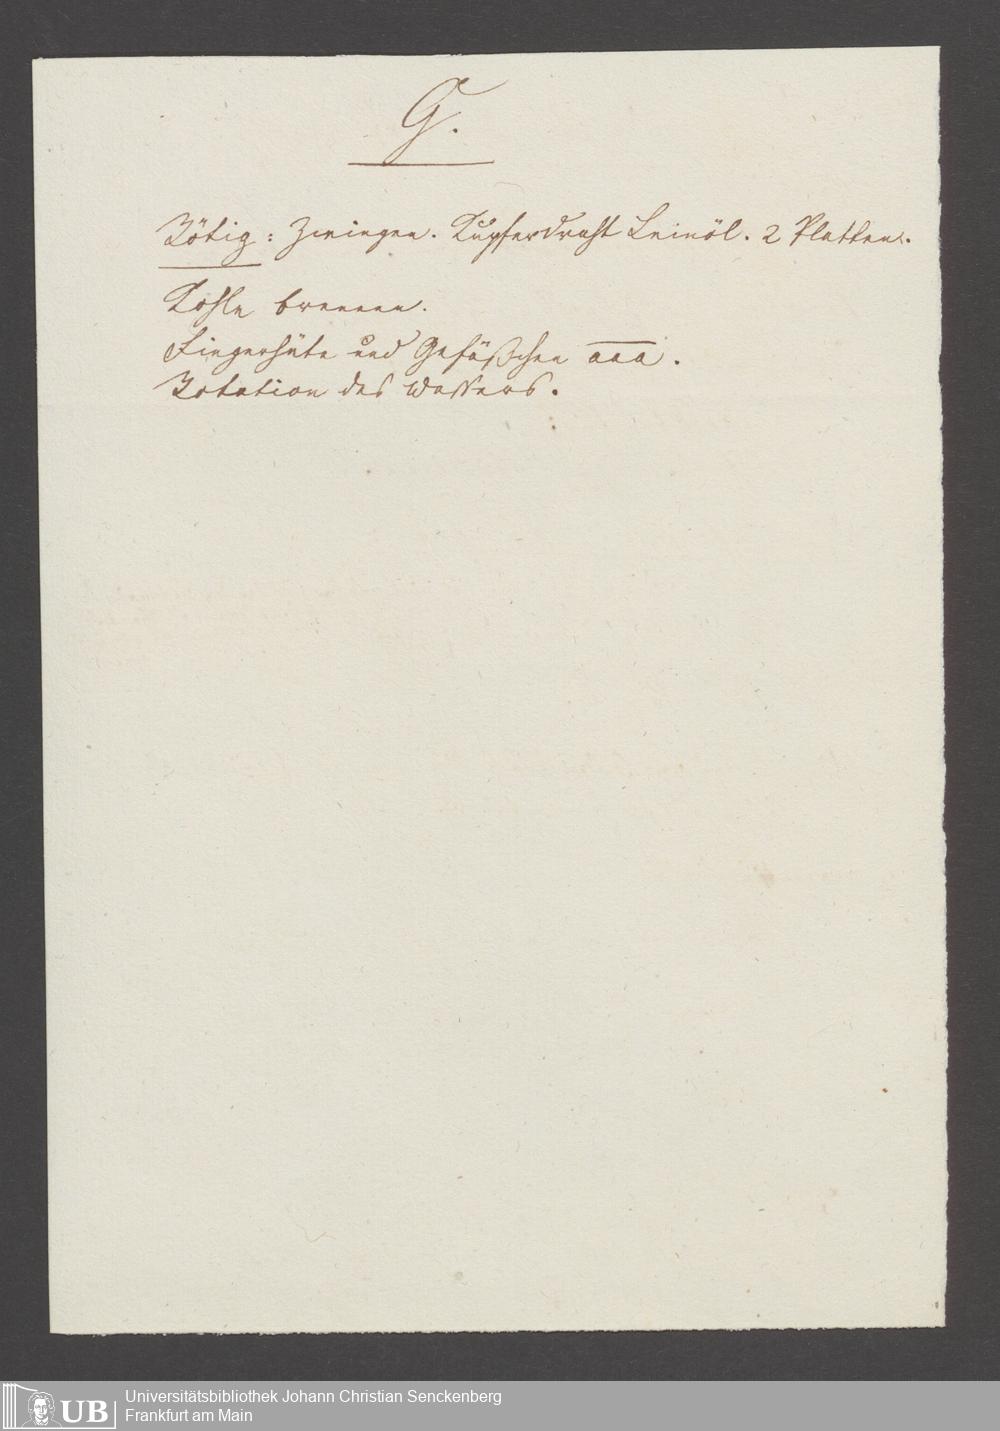 G.
Nötig: Zwingen. Kupferdraht Leinöl. 2 Platten.
Kohle brennen.
Fingerhüte und Gefäßchen aaa.
Rotation des Wassers.
Universitätsbibliothek Johann Christian Senckenberg
Frankfurt am Main
UB